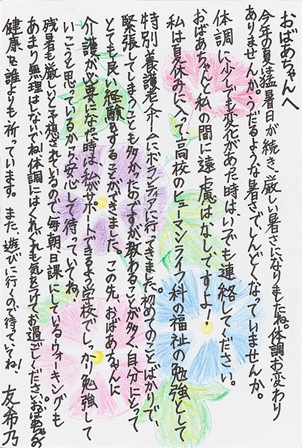 おばあちゃんへ
今年の夏は猛暑日が続き、厳しい暑さになりましたね。体調お変わり
ありませんか。うだるような暑さでしんどくなっていませんか。
体調に少しでも変化があった時は、いつでも連絡してください。
おばあちゃんと私の間に遠慮はなしですよ！
私は夏休みに入って、高校のヒューマンライフ科の福祉の勉強として
特別養護老人ホームにボランティアに行ってきました。初めてのことばかりで、
緊張してしまうことも多かったのですが、教わることが多く、自分にとって
とても良い経験をすることができました。この先、おばあちゃんに
介護が必要になった時は、私がサポートできるよう学校でしっかり勉強して
いこうと思っているから安心して待っていてね。
残暑も厳しいと予想されているので、毎朝日課にしているウォーキングも
あまり無理はしないでね。体調にはくれぐれも気をつけてお過ごしください。おばあちゃんの
健康を誰よりも祈っています。また、遊びに行くので待っていてね！
友希乃